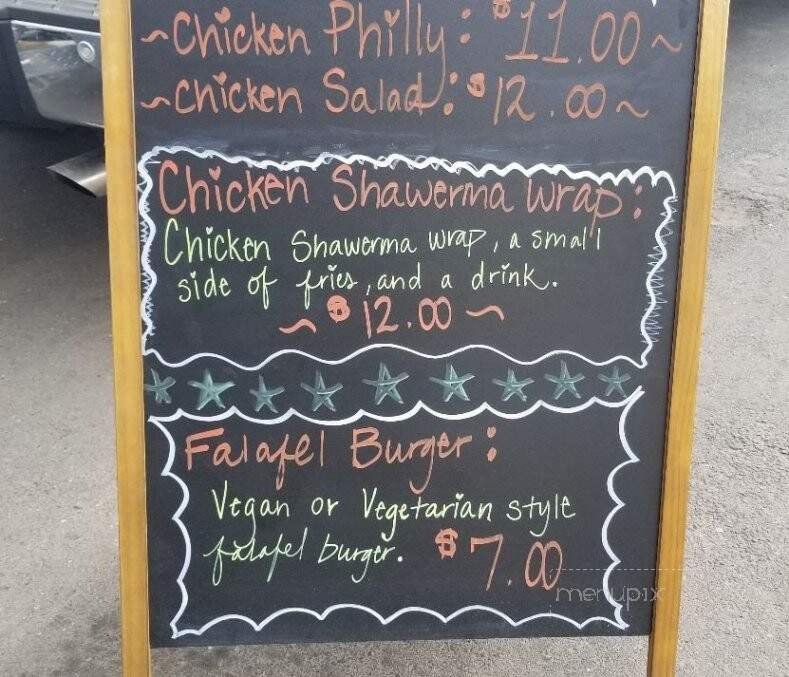 ~Chicken Philly: $11.00~
~Chicken Salad: $12.00~
Chicken Shawerma Wrap:
Chicken Shawerma Wrap, a small
side of fries, and a drink.
~ $12.00 ~
Falafel Burger:
Vegan or Vegetarian style
falafel burger. $7.00
menupix